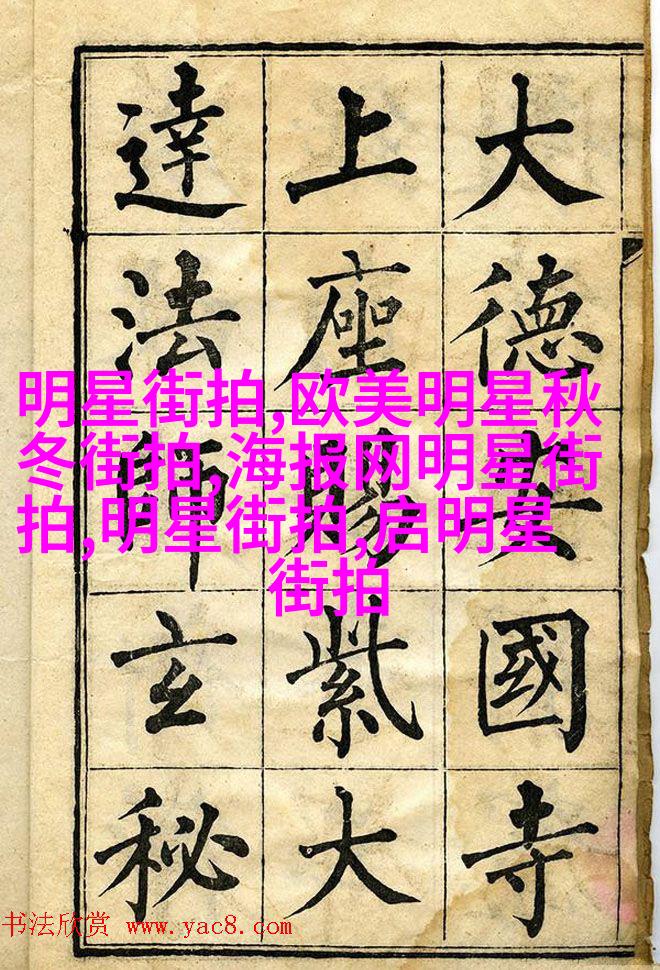 大德安國寺
上座賜紫大
達法師玄秘
明星街拍,欧美明星秋
冬街拍,海报网明星街
拍,明星街拍,启明星
街拍
书法欣赏 www.yac8.com